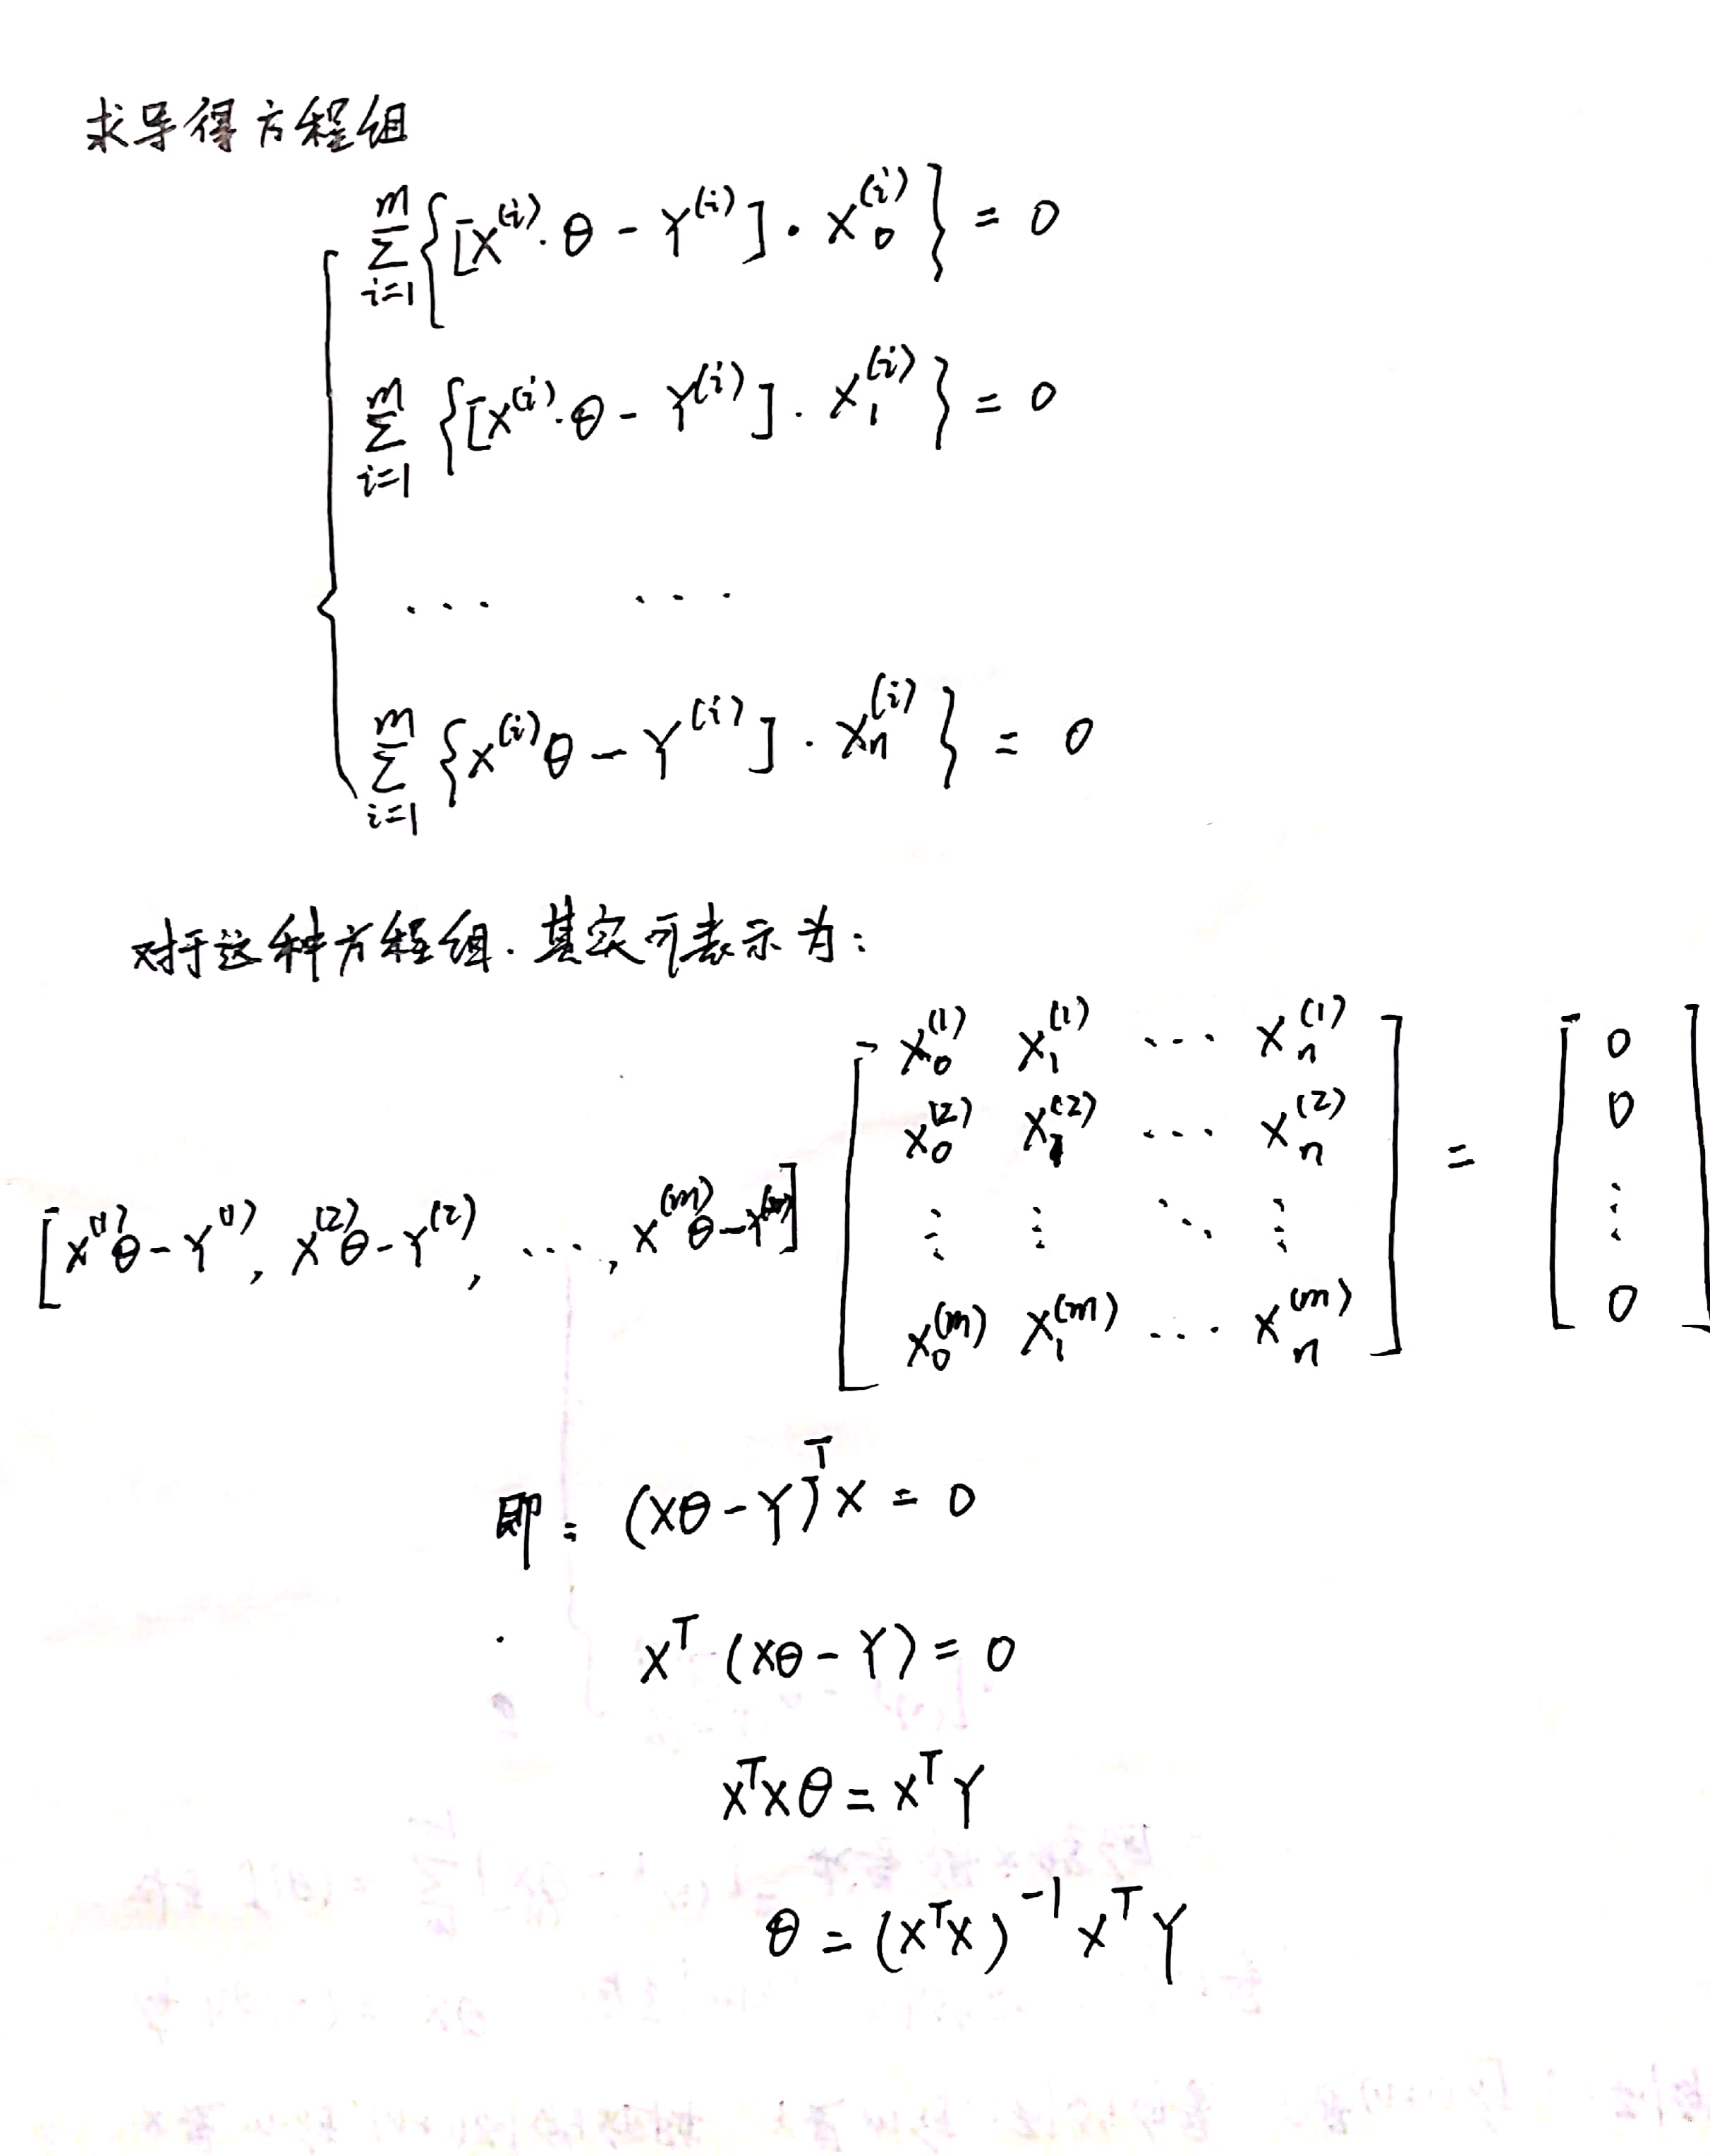 求导得方程组
∑_{i=1}^{m} {[X^{(i)}·θ - Y^{(i)}]·X_0^{(i)}} = 0
∑_{i=1}^{m} {[X^{(i)}·θ - Y^{(i)}]·X_1^{(i)}} = 0
... ...
∑_{i=1}^{m} {X^{(i)}θ - Y^{(i)}]·X_n^{(i)}} = 0
对于这种方程组.其实可表示为:
[X^{(1)}θ - Y^{(1)}, X^{(2)}θ - Y^{(2)}, ..., X^{(m)}θ - Y^{(m)}] [X_0^{(1)} X_1^{(1)} ... X_n^{(1)}; X_0^{(2)} X_1^{(2)} ... X_n^{(2)}; ⋮ ⋮ ⋱ ⋮; X_0^{(m)} X_1^{(m)} ... X_n^{(m)}] = [0; 0; ⋮; 0]
即: (Xθ - Y)^T X = 0
X^T (Xθ - Y) = 0
X^T X θ = X^T Y
θ = (X^T X)^{-1} X^T Y